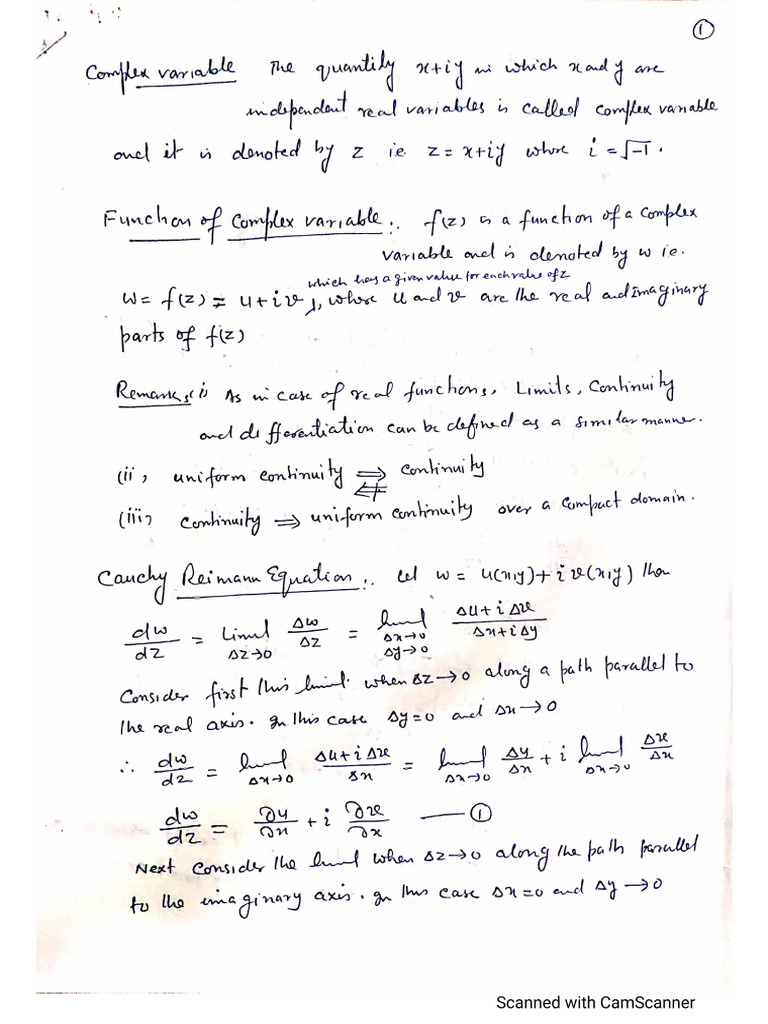 ①
Complex variable The quantity x+iy in which x and y are
independent real variables is called complex variable
and it is denoted by z ie z = x+iy where i = √-1 .
Function of complex variable:. f(z) is a function of a complex
variable and is denoted by w ie.
which has a given value for each value of z
w = f(z) = u+iv, where u and v are the real and imaginary
parts of f(z)
Remarks(i) As in case of real functions, Limits, Continuity
and differentiation can be defined as a similar manner.
(ii, uniform continuity ⟹ continuity
⟸̸
(iii) continuity ⟹ uniform continuity over a compact domain.
Cauchy Reimann Equation:. let w = u(x,y)+i v(x,y) then
dw/dz = Limit Δz→0 Δw/Δz = limit Δx→0 Δy→0 Δu+iΔv/Δx+iΔy
Consider first this limit. when Δz→0 along a path parallel to
the real axis. In this case Δy=0 and Δx→0
∴ dw/dz = limit Δx→0 Δu+iΔv/Δx = limit Δx→0 Δu/Δx + i limit Δx→0 Δv/Δx
dw/dz = ∂u/∂x + i ∂v/∂x —— ①
Next consider the limit when Δz→0 along the path parallel
to the imaginary axis. In this case Δx=0 and Δy→0
Scanned with CamScanner